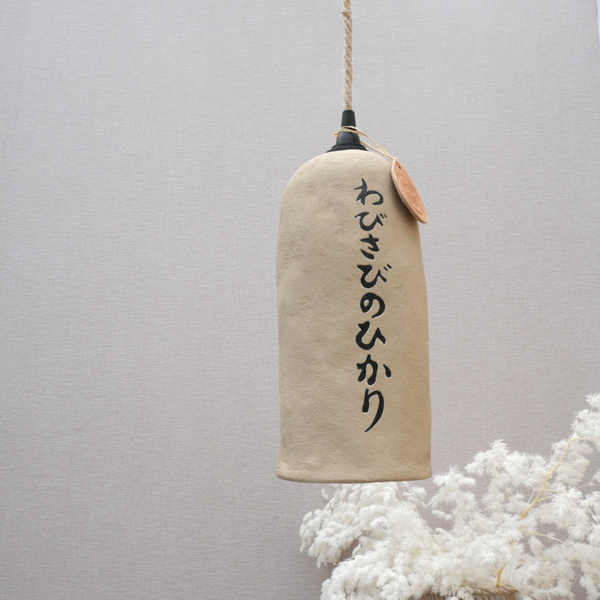 わびさびのひかり